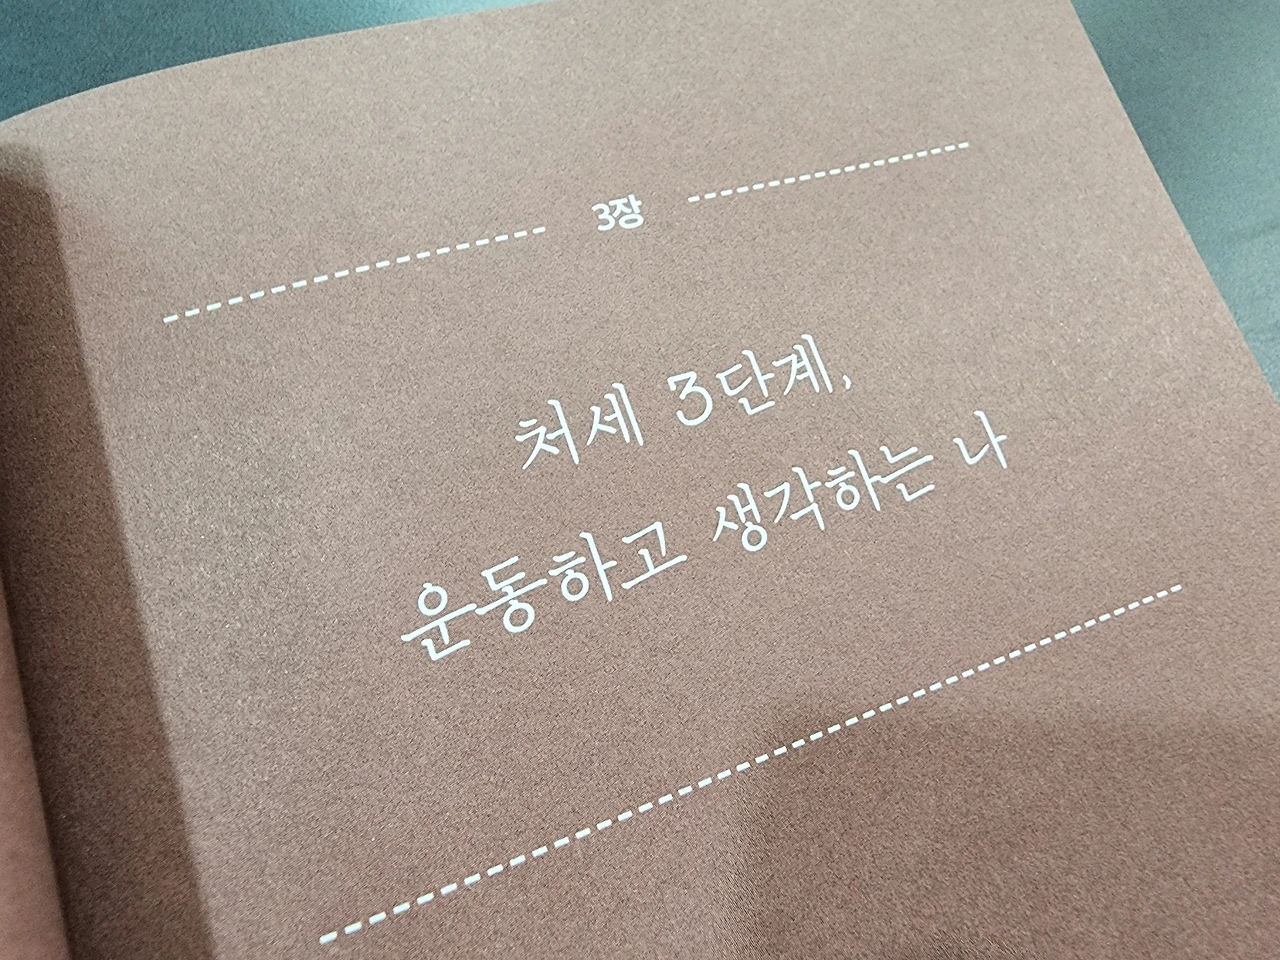 3장
처세 3단계,
운동하고 생각하는 나